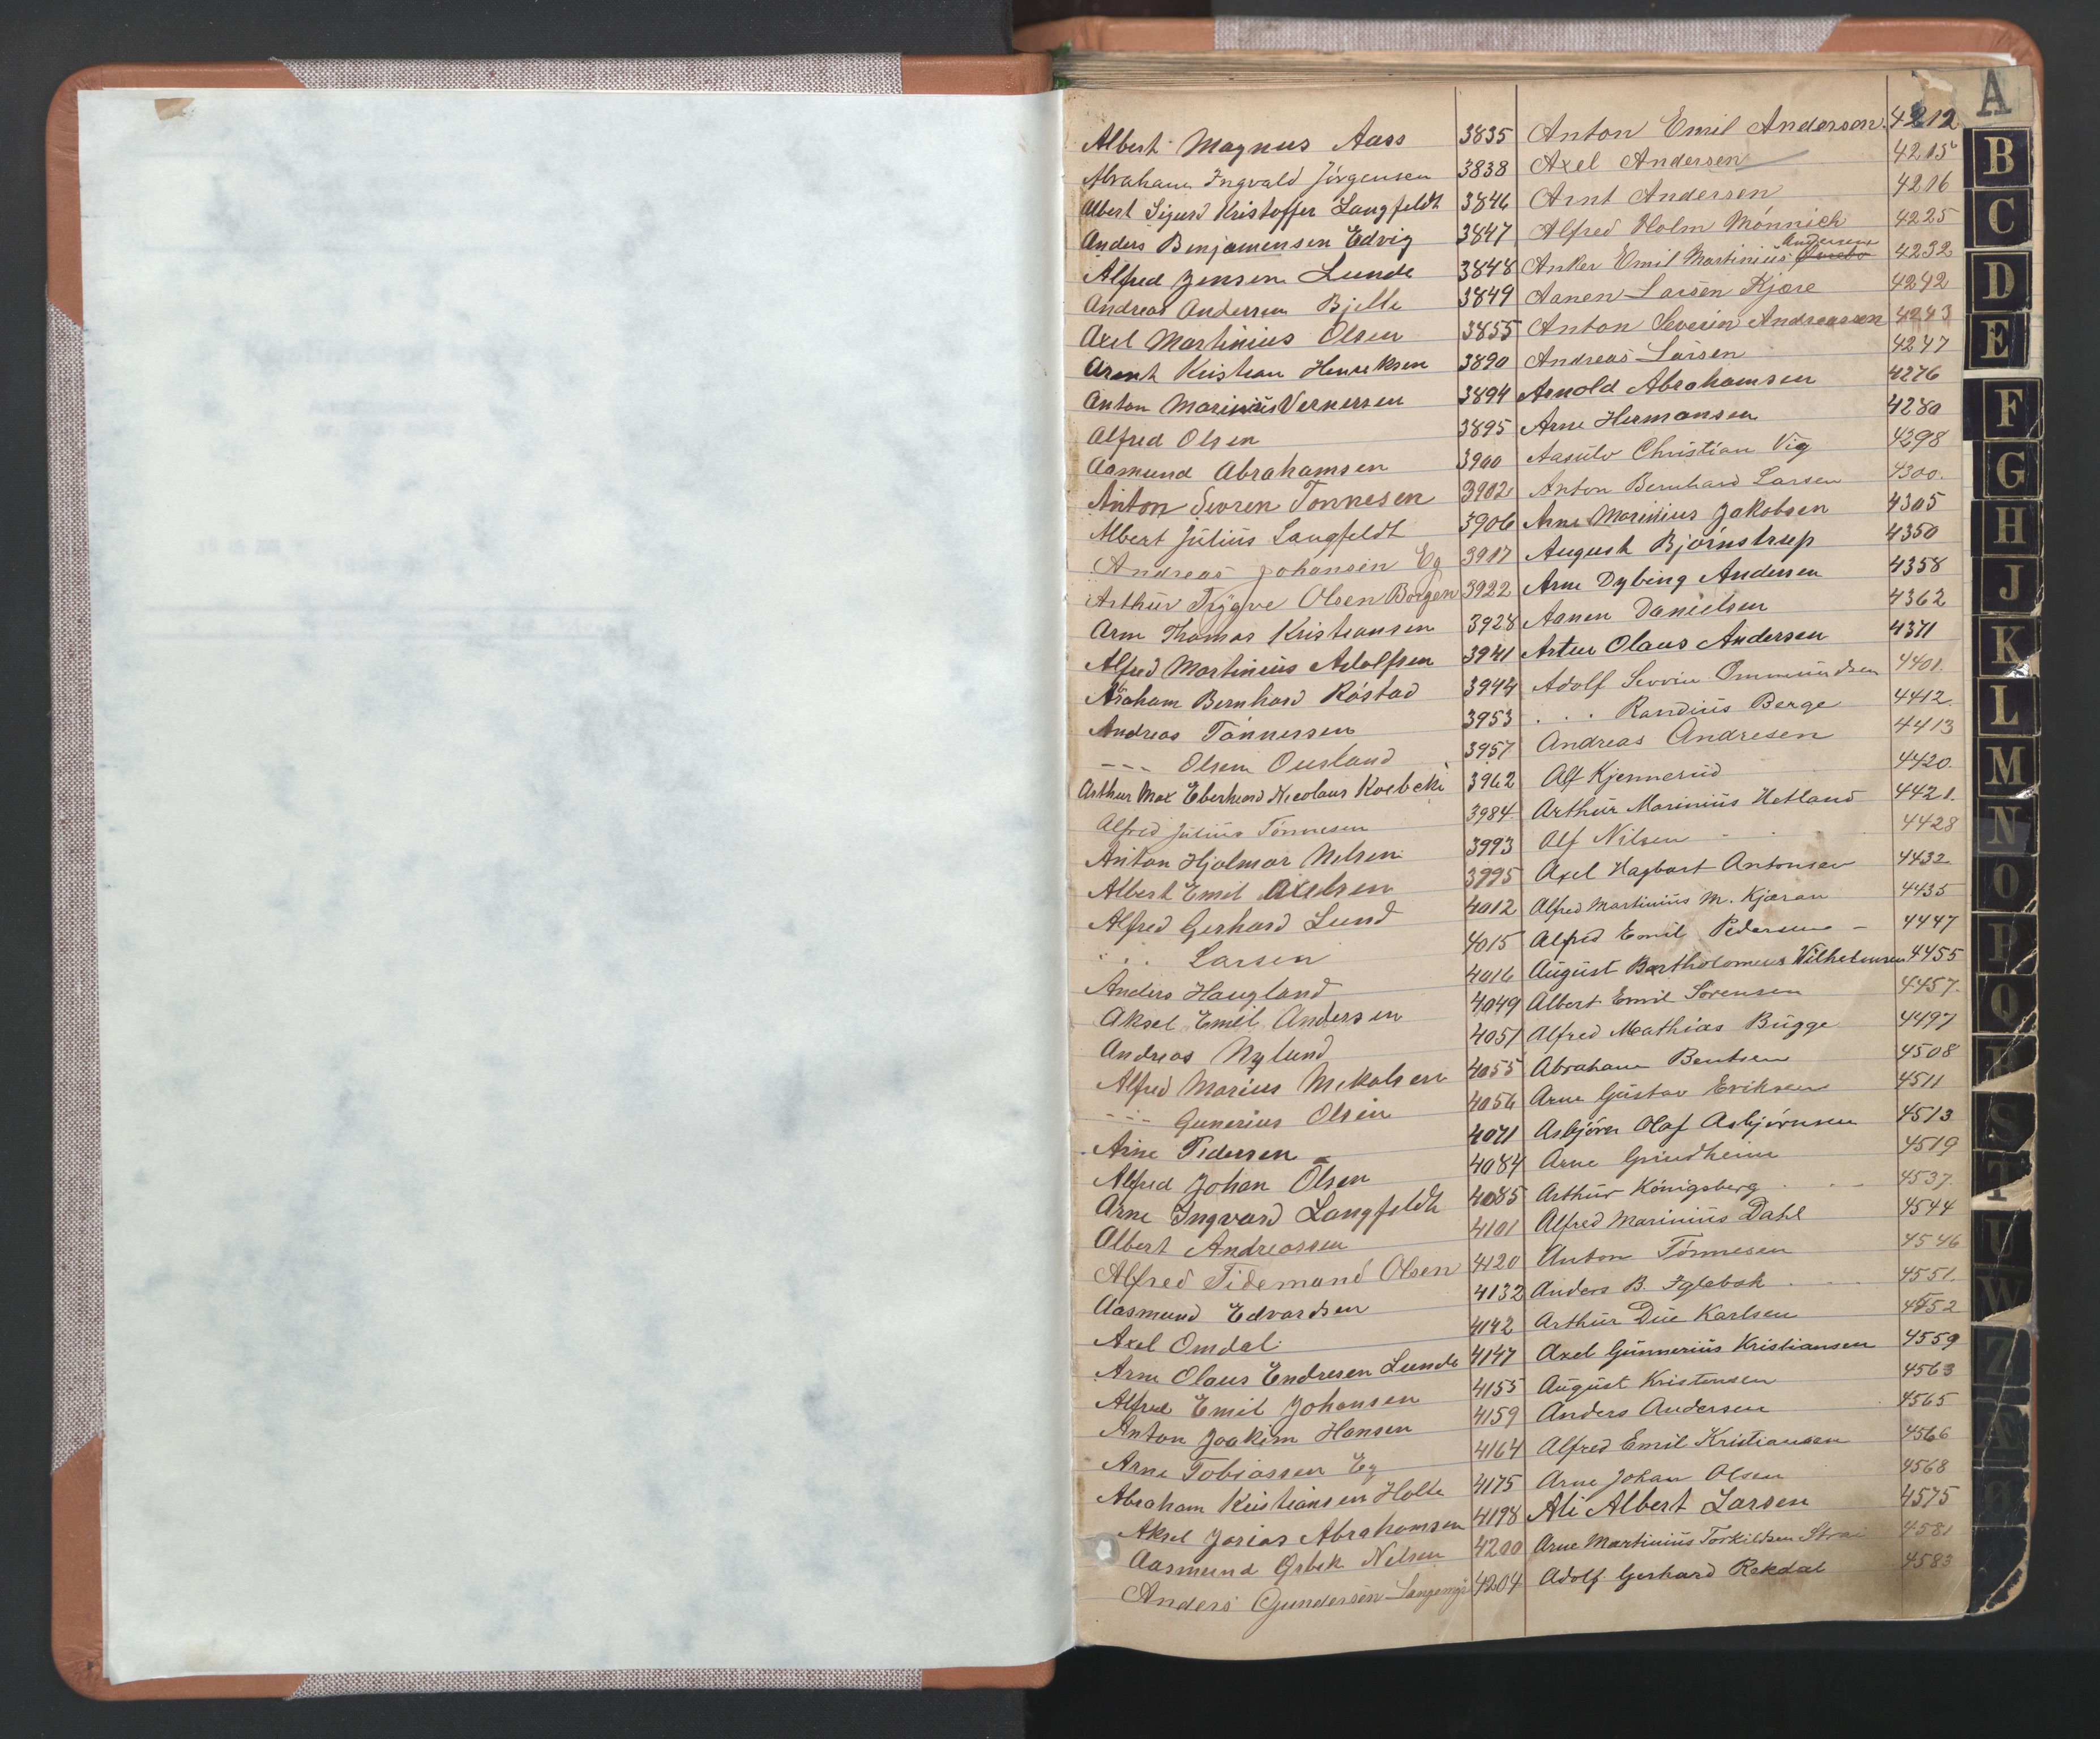 Albert Magnus Aass 3835
Abraham Ingvald Jörgensen 3838
Albert Sigurd Kristoffer Langfeldt 3846
Anders Benjamensen Edvig 3847
Alfred Jensen Lunde 3848
Andreas Andersen Bjelle 3849
Axel Martinius Olsen 3855
Arent Kristian Henriksen 3890
Anton Marinius Vernersen 3894
Alfred Olsen 3895
Aasmund Abrahamsen 3900
Anton Sevren Tonnesen 3902
Albert Julius Langfeldt 3906
Andreas Johansen Eg 3917
Arthur Trygve Olsen Borgen 3922
Arne Thomas Kristiansen 3928
Alfred Martinius Adolfsen 3941
Abraham Bernhard Röstad 3944
Andreas Tönnessen 3953
--- Olsen Ousland 3957
Arthur Max Eberhard Nicolaus Koebcke 3962
Alfred Julius Tönnesen 3984
Anton Hjalmar Nelsen 3993
Albert Emil Axelsen 3995
Alfred Gerhard Lund 4012
. . . Larsen 4015
Anders Haugland 4016
Aksel Emil Andersen 4049
Andreas Nylund 4051
Alfred Marius Mekalsen 4055
--- Gunerius Olsen 4056
Arne Pedersen 4071
Alfred Johan Olsen 4084
Arne Ingvard Langfeldt 4085
Albert Andreassen 4101
Alfred Tidemand Olsen 4120
Aasmund Edvardsen 4132
Axel Omdal 4142
Arne Olaus Endresen Lunde 4147
Alfred Emil Johansen 4155
Anton Joakim Hansen 4159
Arne Tobiassen Eg 4164
Abraham Kristiansen Holte 4175
Aksel Josias Abrahamsen 4198
Aasmund Osbek Nelsen 4200
Anders Gundersen 4204
Anton Emil Andersen 4212
Axel Andersen 4215
Arnt Andersen 4216
Alfred Holm Mönnich 4225
Andersen
Anker Emil Martinius 4232
Aanen Larsen Kjære 4242
Anton Severin Andreassen 4243
Andreas Larsen 4247
Arnold Abrahamsen 4276
Arne Hermansen 4280
Aasulv Christian Vig 4298
Anton Bernhard Larsen 4300.
Arne Marinius Jakobsen 4305
August Bjørnstrup 4350
Arne Dybing Andersen 4358
Aanen Danielsen 4362
Artur Olaus Andersen 4371
Adolf Severin Ommundsen 4401.
. . . Randius Berge 4412.
Andreas Andresen 4413
Alf Kjennerud 4420.
Arthur Marinius Hetland 4421.
Alf Nilsen 4428
Axel Hagbart Antonsen 4432
Alfred Martinius M. Kjæran 4435
Alfred Emil Pedersen 4447
August Bartholomeus Vilhelmsen 4455
Albert Emil Sörensen 4457.
Alfred Mathias Bugge 4497
Abraham Bentsen 4508
Arne Gustav Eriksen 4511
Asbjörn Olaf Asbjörnsen 4513
Arne Grindheim 4519
Arthur Königsberg 4537
Alfred Marinius Dahl 4544
Anton Tönnesen 4546
Anders B. Iglebæk 4551.
Arthur Due Karlsen 4552
Axel Gunnerius Kristiansen 4559
August Kristensen 4563
Anders Andersen 4565
Alfred Emil Kristiansen 4566
Arne Johan Olsen 4568
Ali Albert Larsen 4575
Arne Martinius Torkildsen Strai 4581
Adolf Gerhard Rekdal 4583
A
B
C
D
E
F
G
H
J
K
L
M
N
O
P
Q
R
S
T
U
W
Z